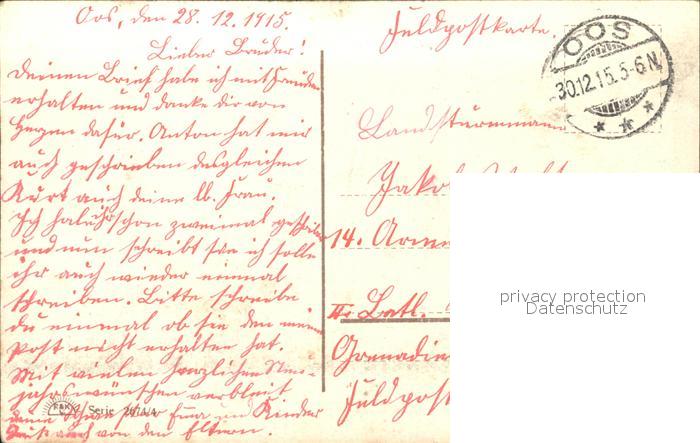 Oos, den 28. 12. 1915.
Lieber Bruder!
Deinen Brief habe ich mit Freuden
erhalten und danke dir von
Herzen dafür. Anton hat mir
auch geschrieben desgleichen
Kurt auch deine lb. Frau.
Ich habe schon zweimal geschrieben
und nun schreibt sie ich solle
ihr auch wieder einmal
schreiben. Bitte schreibe
du einmal ob sie den meine
Post nicht erhalten hat.
Mit vielen herzlichen Neu-
jahrswünschen verbleibt
deine Emma und Kinder
Gruß auch von den Eltern.
Serie
Feldpostkarte.
OOS
30.12.15.5-6N.
Landsturmmann
Jakob
14. Arme
II. Batl.
Grenadie
Feldpost
privacy protection
Datenschutz